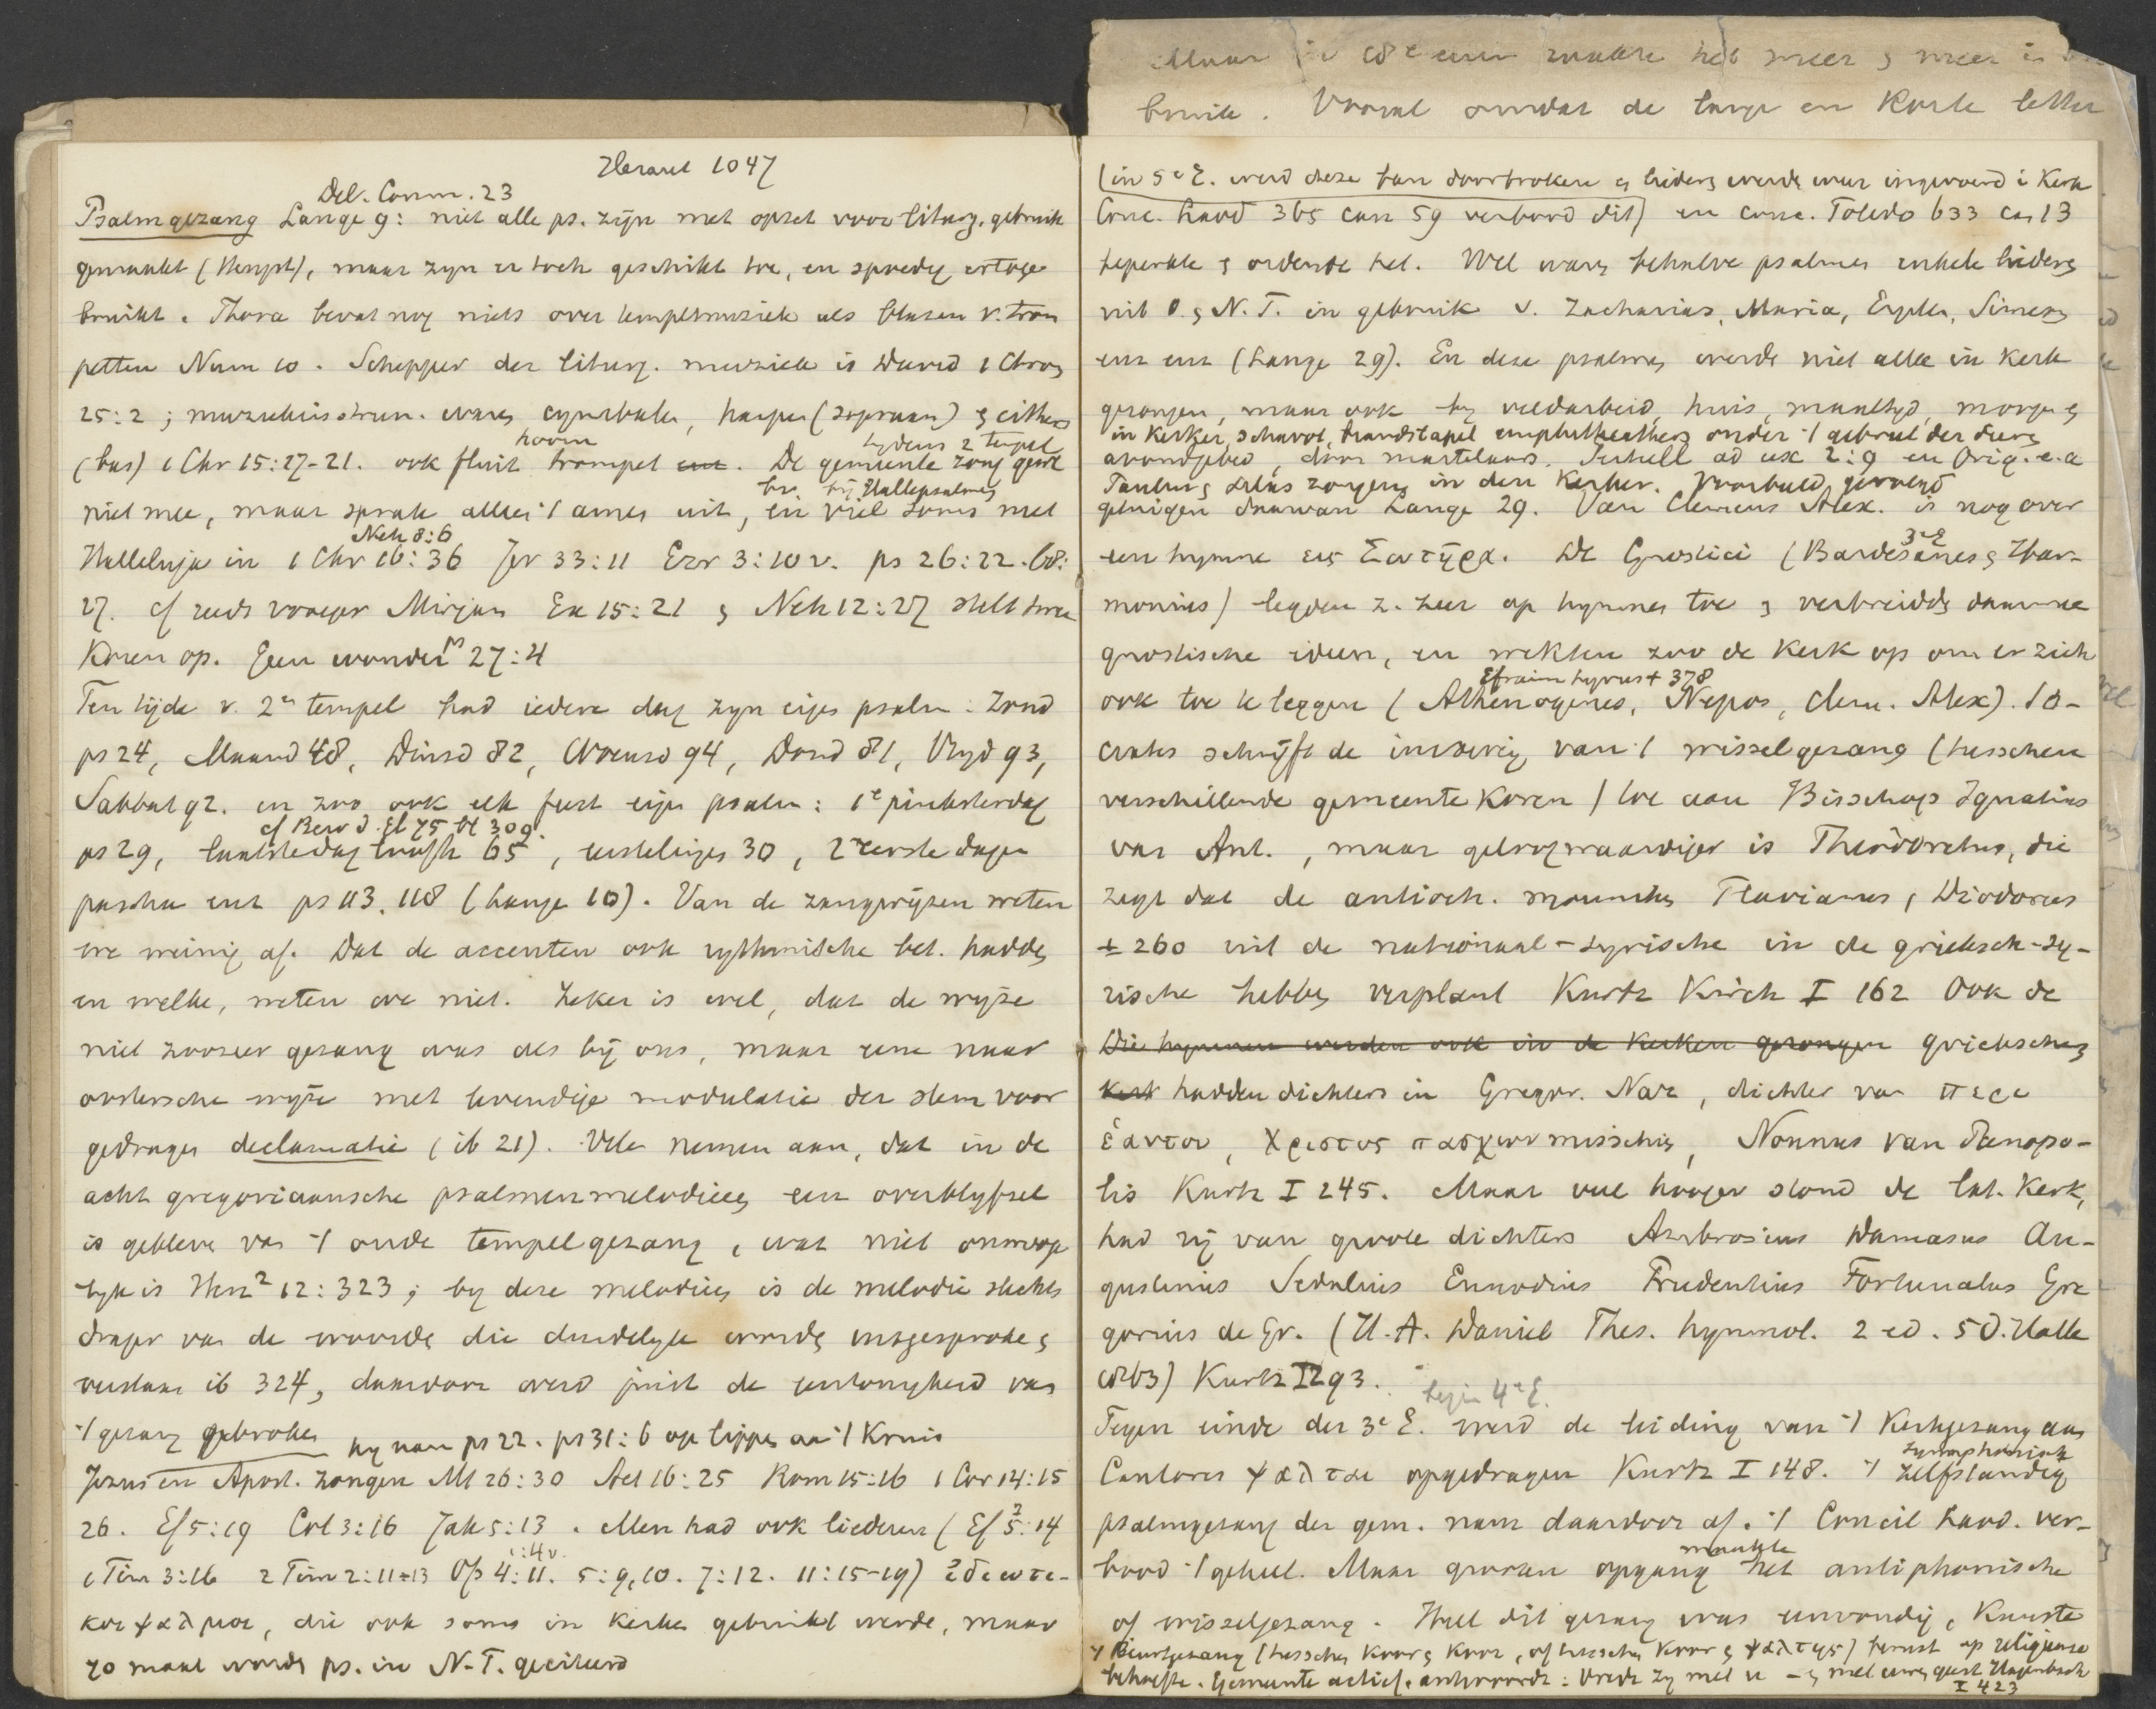 Heraut 1047
Del. Comm. 23
Psalmgezang Lange 9: niet alle ps. zijn met opzet voor liturg. gebruik
gemaakt (Hengst), maar zyn er toch geschikt toe, en spoedig ertoe ge
bruikt. Thora bevat nog niets over tempelmuziek als blazen v. trom
petten Num 10. Schepper der liturg. muziek is David 1 Chron
25:2; muziekinstrum. waren cymbalen, harpen (sopraan) & cithers
hoorn tydens 2 tempel
(bas) 1 Chr 15:17-21. ook fluit trompet enz. De gemeente zong
bv. bij Hallepsalmen
niet mee, maar sprak alleen 't amen uit, en viel soms met
Neh 8:6
Halleluja in 1 Chr 16:36 Jer 33:11 Ezr 3:10v. ps 26:22. 68:
27. cf reeds vroeger Mirjam Ex 15:21 & Neh 12:27 stelt twee
koren op. Geen wonder ps 27:4
Ten tijde v. 2en tempel had iedere dag zyn eigen psalm: Zond
ps 24, Maand 48, Dinsd 82, Woensd 94, Dond 81, Vryd 93,
Sabbat 92. en zoo ook elk feest eigen psalm: 1e pinksterdag
cf Benz d. Gb 75 bl 309.
ps 29, laatste dag loofh 65, eerstelinges 30, 2 eerste dagen
pascha enz ps 113. 118 (Lange 10). Van de zangwijzen weten
we weinig af. Dat de accenten ook rythmische bet. hadden
en welke, weten we niet. Zeker is wel, dat de wijze
niet zoozeer gezang was als bij ons, maar eene naar
oostersche wijze met levendige modulatie der stem voor
gedragen declamatie (ib 21). Vele nemen aan, dat in de
acht gregoriaansche psalmenmelodieen een overblyfsel
is gebleven van 't oude tempelgezang, wat niet onmoge
lyk is Herz² 12:323; by deze melodieen is de melodie slechts
drager van de woorden die duidelyk worden uitgesproken &
verstaan ib 324, daardoor werd juist de eentonigheid van
't gezang gebroken hy nam ps 22. ps 31:6 op lippen aan 't Kruis
Jezus en Apost. zongen Mt 26:30 Act 16:25 Rom 15:16 1 Cor 14:15
26. Ef 5:19 Col 3:16 Jak 5:13. Men had ook liederen (Ef 5:14
1:4v.
1 Tim 3:16 2 Tim 2:11-13 Op 4:11. 5:9,10. 7:12. 11:15-19)
και ψαλμοι, die ook soms in kerken gebruikt werden, maar
70 maal worden ps. in N.T. geciteerd
Maar in 18e eeuw raakte het meer & meer in
bruik. Vooral omdat de lange en korte letter
(in 5e E. werd deze ban doorbroken & liederen werden weer ingevoerd i Kerk
Conc. Laod 365 can 59 verbood dit) en conc. Toledo 633 can 13
beperkte & ordende het. Wel waren behalve psalmen enkele liederen
uit O. & N.T. in gebruik v. Zacharias, Maria, Engelen, Simeon
enz enz (Lange 29). En deze psalmen werden niet alleen in kerk
gezongen, maar ook by veldarbeid, huis, maaltyd, morgen &
in Kerker, schavot, brandstapel amphitheaters onder 't gebrul der dieren
avondgebed, door martelaars. Tertull ad ux 2:9 en Orig. e.a
Paulus & Silas zongen in den Kerker. Voorbeeld gevolgd
getuigen daarvan Lange 29. Van Clemens Alex. is nog over
3e E
een hymne εις Σωτηρα. De Gnostici (Bardesanes & Har-
monius) legden z. zeer op hymnen toe & verbreidden daarmee
gnostische ideen, en wekten zoo de Kerk op om er zich
Efraim Syrus + 378
ook toe te leggen (Athenogenes, Nepos, Clem. Alex). So-
crates schrijft de invoering van 't wisselgezang (tusschen
verschillende gemeente koren) toe aan Bisschop Ignatius
van Ant., maar geloofwaardiger is Theodoretus, die
zegt dat de antioch. monniken Flavianus, Diodorus
± 260 uit de nationaal-syrische in de grieksch-sy-
rische hebben verplant Kurtz Kirch I 162 Ook de
Die hymnen werden ook in de Kerken gezongen grieksche
kerk hadden dichters in Gregor. Naz, dichter van περι
ἑαυτου, Χριστος πασχων misschien, Nonnus van Panopo-
lis Kurtz I 245. Maar veel hooger stond de lat. Kerk,
had zij van groote dichters Ambrosius Damasus Au-
gustinus Sedulius Ennodius Prudentius Fortunatus Gre
gorius de Gr. (H.A. Daniel Thes. hymnol. 2 ed. 5 D. Halle
1863) Kurtz I 293.
begin 4e E.
Tegen einde der 3e E. werd de leiding van 't Kerkgezang aan
symphonisch
Cantores ψαλται opgedragen Kurtz I 148. 't zelfstandig
psalmgezang der gem. nam daardoor af. 't Concil Laod. ver-
maakte
bood 't geheel. Maar grooten opgang het antiphonische
of wisselgezang. Heel dit gezang was eenvoudig, Kunste
't Beurtgezang (tusschen koor & koor, of tusschen koor & ψαλτης) berust op religieuse
behoefte. Gemeente actief. antwoordt: Vrede zy met u — & met uwen geest Hagenbach
I 423